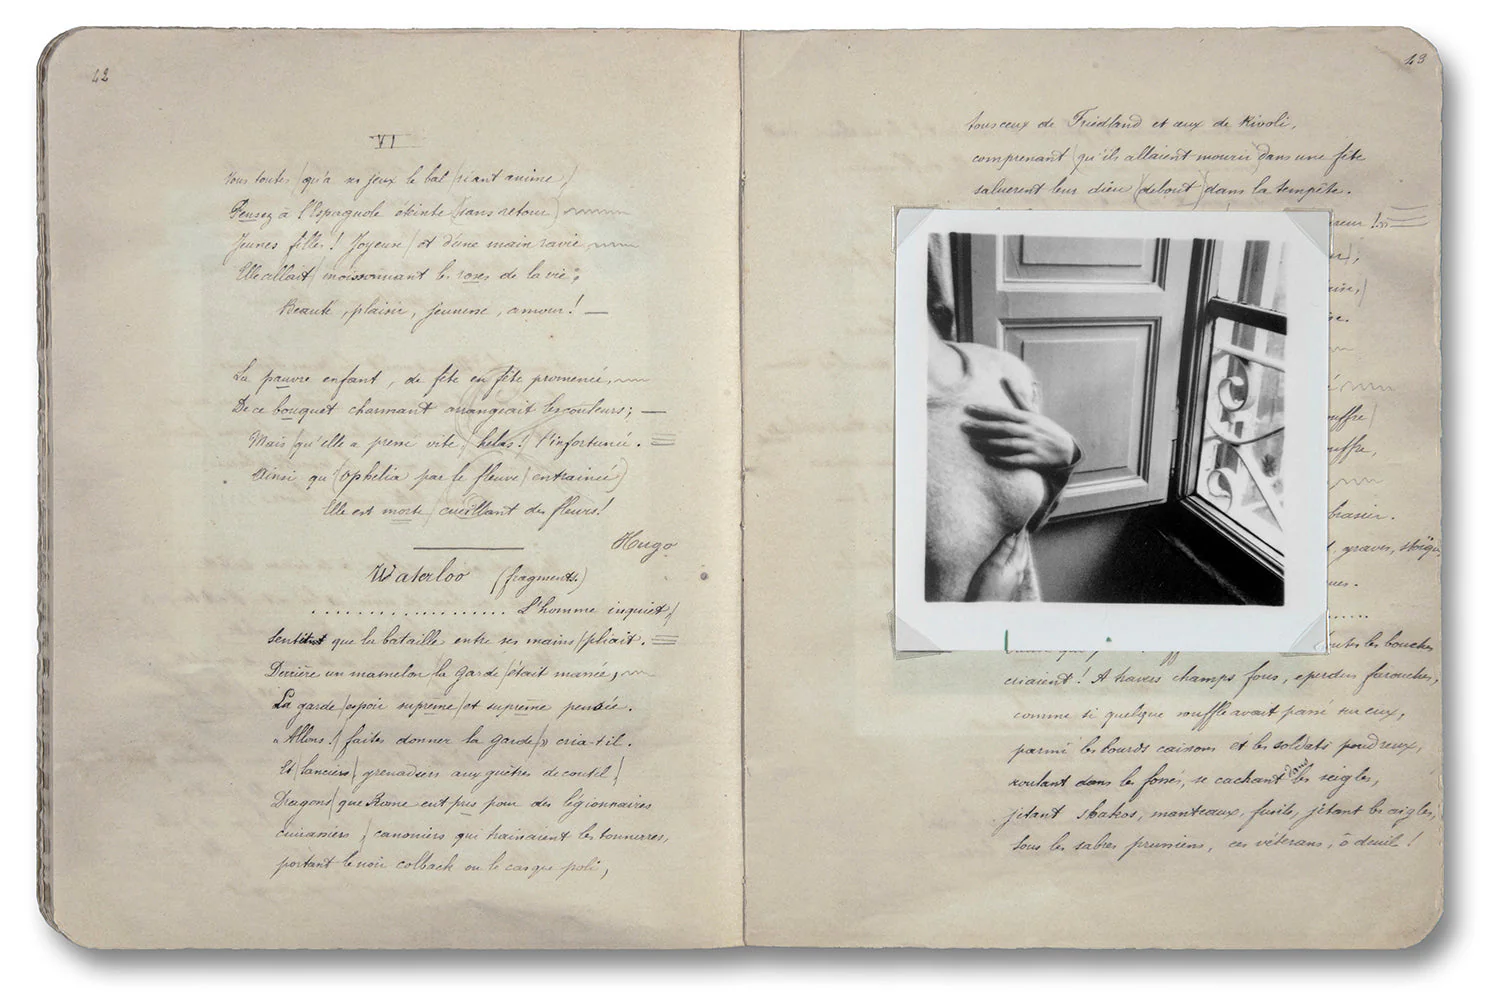 42
VI
Vous toutes (qu'à ses jeux le bal (riant anime)
Pensez à l'Espagnole éteinte (sans retour)
Jeunes filles! Joyeuse / et d'une main ravie,
Elle allait / moissonnant les roses de la vie;
Beauté, plaisir, jeunesse, amour! —
La pauvre enfant, de fête en fête promenée,
De ce bouquet charmant arrangeait les couleurs; —
Mais (qu'elle a passé vite / hélas! l'infortunée.
Ainsi qu'(Ophélia par le fleuve / entrainée)
Elle est morte / cueillant des fleurs!
Hugo
Waterloo (fragments)
.................. L'homme inquiet /
sentit que la bataille entre ses mains / pliait.
Derrière un mamelon la garde / était massée,
La garde / espoir suprême / et suprême pensée.
"Allons! / faites donner la garde /" cria-t-il.
Et / lanciers / grenadiers aux guêtres de coutil /
Dragons / que Rome eut pris pour des légionnaires
cuirassiers / canoniers qui trainaient les tonnerres,
portant le noir colback ou le casque poli,
43
tous ceux de Friedland et ceux de Rivoli,
comprenant (qu'ils allaient mourir) dans une fête
saluerent leur dieu (debout) dans la tempête.
reur!"
ouffre /
ouffre,
brasier.
, graves, stoïqu
ues.
....
toutes les bouches
criaient! A travers champs, fous, eperdus farouches,
comme si quelque souffle avait passé sur eux,
parmi les lourds caissons et les soldats poudreux,
roulant dans les fossés, se cachant dans les seigles,
jetant shakos, manteaux, fusils, jetant les aigles,
sous les sabres prussiens, ces vétérans, ô deuil!